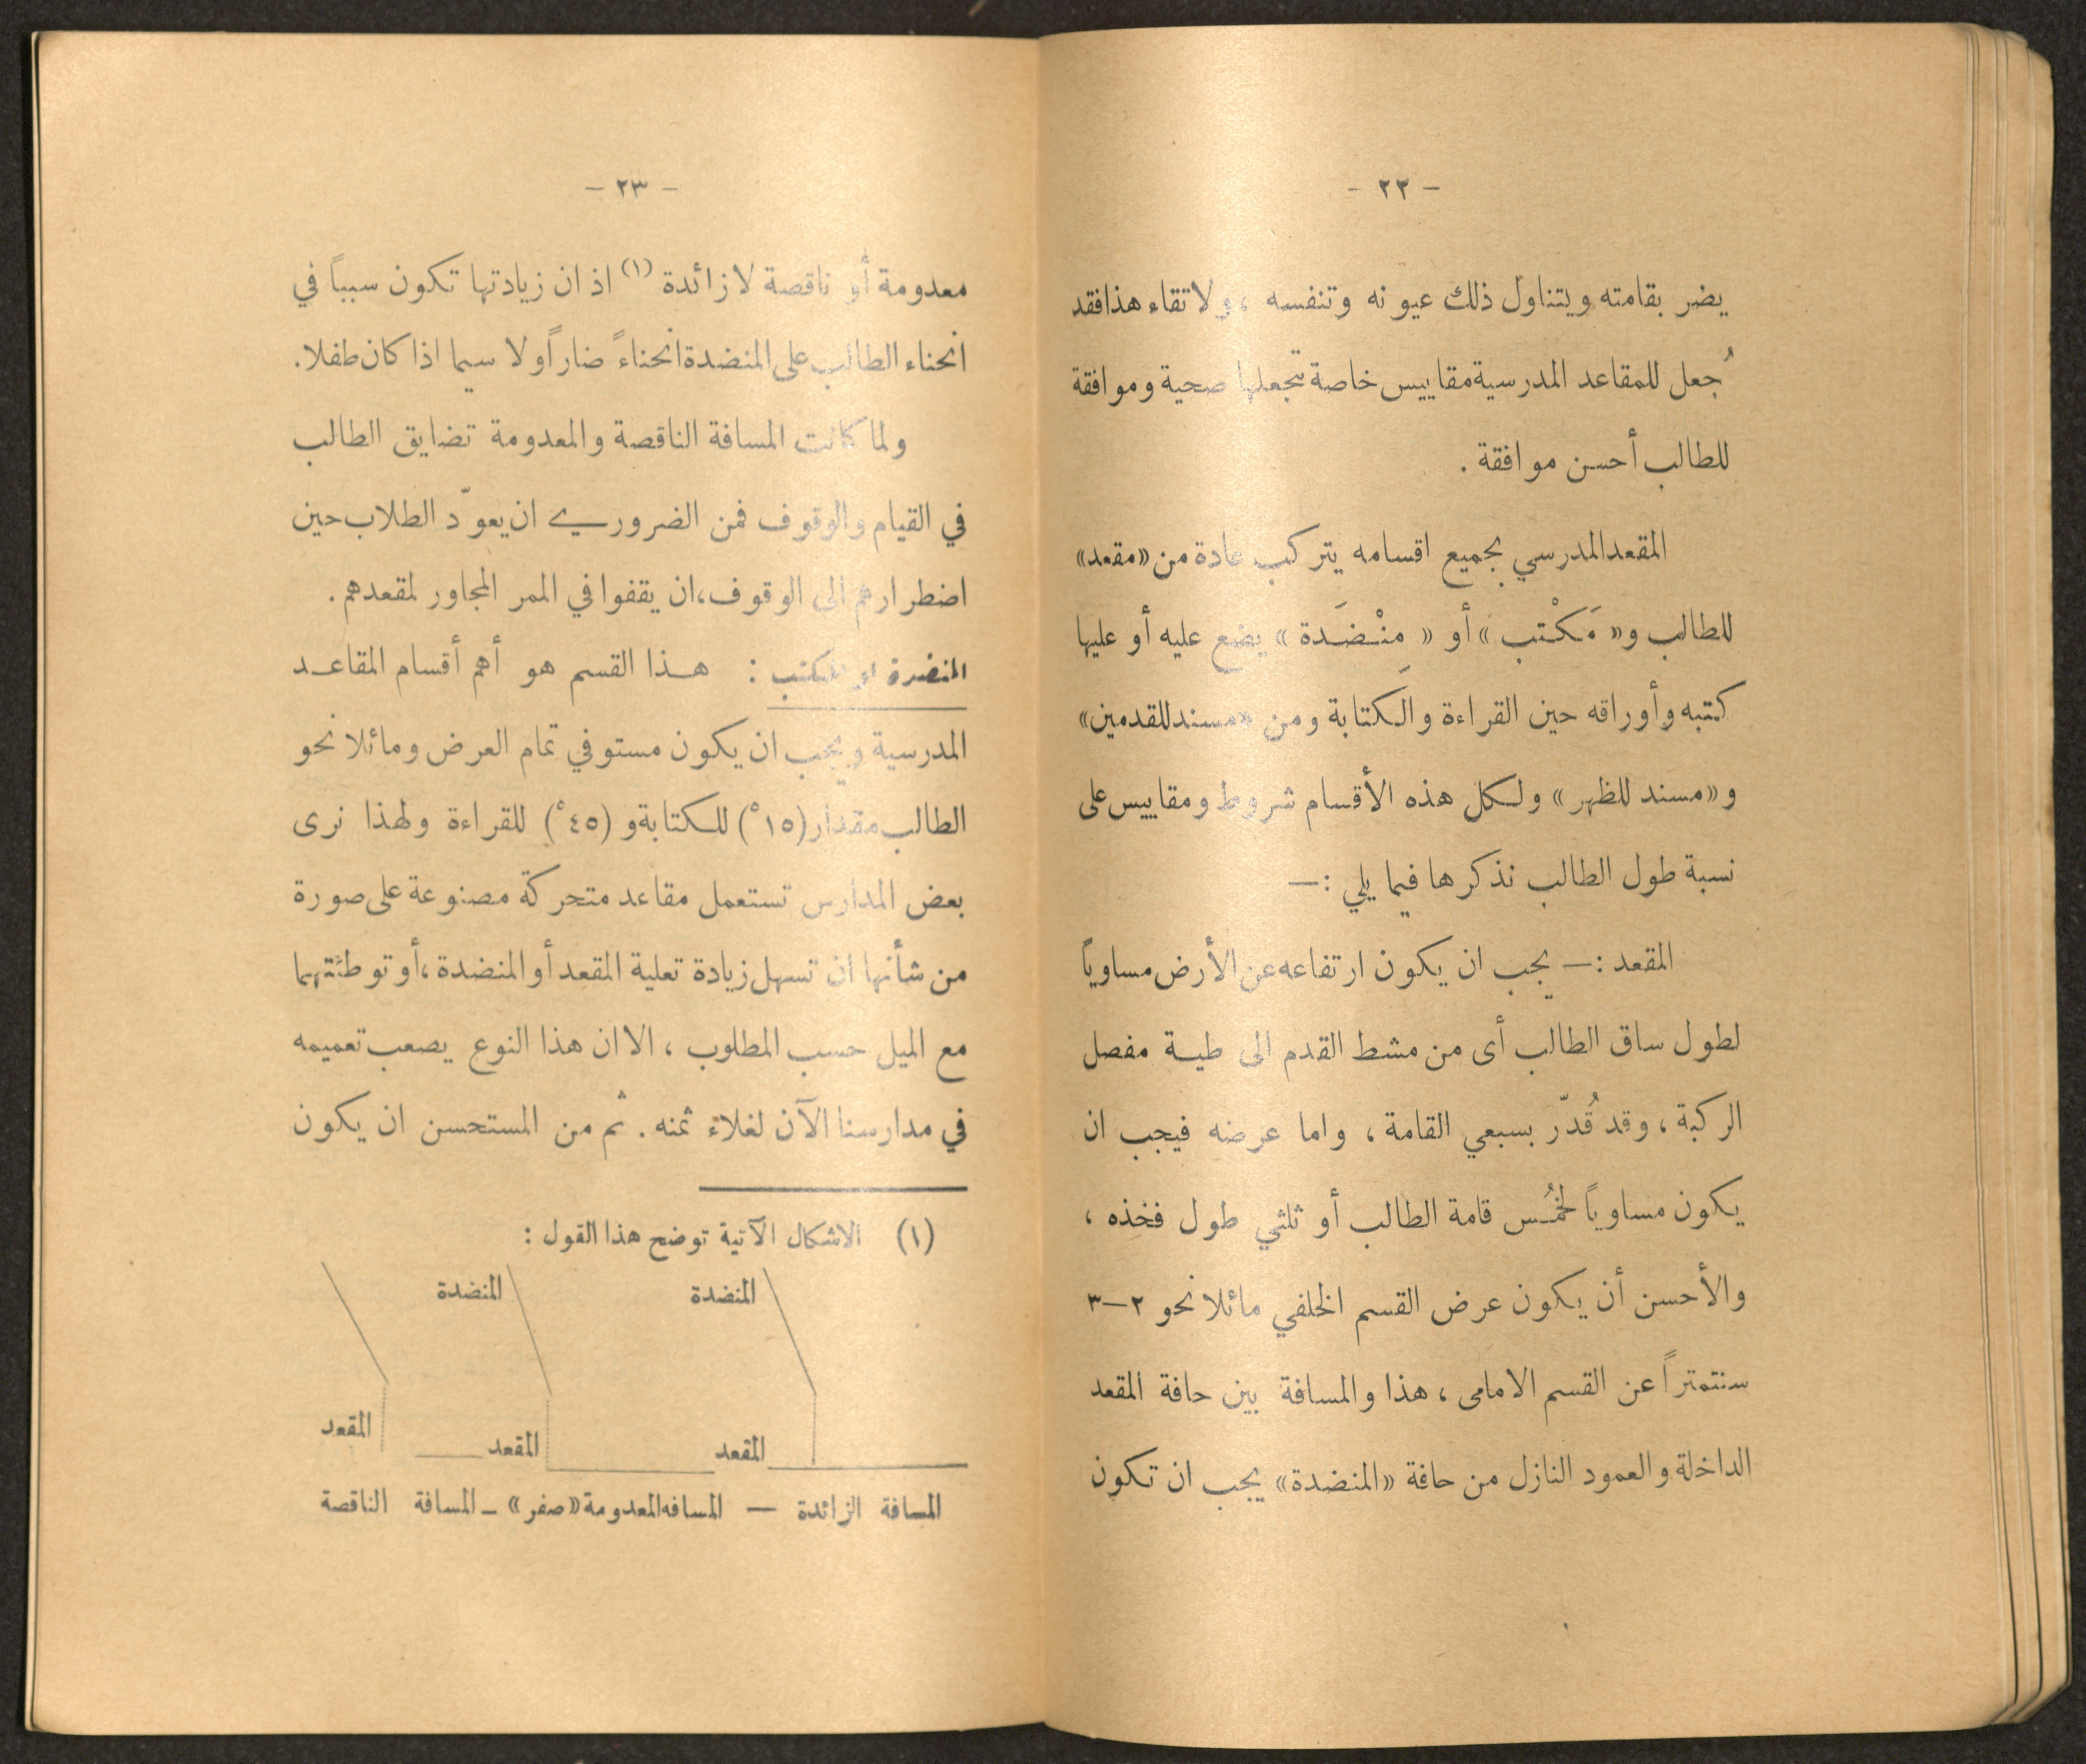 — ٢٢ —
يضر بقامته ويتناول ذلك عيونه وتنفسه ، ولاتقاء هذا فقد
جُعل للمقاعد المدرسية مقاييس خاصة تجعلها صحية وموافقة
للطالب أحسن موافقة .
المقعد المدرسي بجميع اقسامه يتركب عادة من «مقعد»
للطالب و« مَكْتب » أو « مِنْضَدة » يضع عليه أو عليها
كتبه وأوراقه حين القراءة والكتابة ومن «مسند للقدمين»
و«مسند للظهر» ولكل هذه الأقسام شروط ومقاييس على
نسبة طول الطالب نذكرها فيما يلي :—
المقعد :— يجب ان يكون ارتفاعه عن الأرض مساوياً
لطول ساق الطالب أى من مشط القدم الى طية مفصل
الركبة ، وقد قُدّر بسبعي القامة ، واما عرضه فيجب ان
يكون مساوياً لخمُس قامة الطالب أو ثلثي طول فخذه ،
والأحسن أن يكون عرض القسم الخلفي مائلا نحو ٢—٣
سنتمتراً عن القسم الامامى ، هذا والمسافة بين حافة المقعد
الداخلة والعمود النازل من حافة «المنضدة» يجب ان تكون
— ٢٣ —
معدومة أو ناقصة لا زائدة (١) اذ ان زيادتها تكون سبباً في
انحناء الطالب على المنضدة انحناءً ضاراً ولا سيما اذا كان طفلا.
ولما كانت المسافة الناقصة والمعدومة تضايق الطالب
في القيام والوقوف فمن الضروري ان يعوّد الطلاب حين
اضطرارهم الى الوقوف، ان يقفوا في الممر المجاور لمقعدهم .
المنضدة او المكتب : هذا القسم هو أهم أقسام المقاعد
المدرسية ويجب ان يكون مستوفي تمام العرض ومائلا نحو
الطالب مقدار (١٥°) للكتابة و (٤٥°) للقراءة ولهذا نرى
بعض المدارس تستعمل مقاعد متحركة مصنوعة على صورة
من شأنها ان تسهل زيادة تعلية المقعد أو المنضدة ، أو توطئتهما
مع الميل حسب المطلوب ، الا ان هذا النوع يصعب تعميمه
في مدارسنا الآن لغلاء ثمنه . ثم من المستحسن ان يكون
(١) الاشكال الآتية توضح هذا القول :
المنضدة المنضدة
المقعد المقعد المقعد
المسافة الزائدة — المسافه المعدومة «صفر» — المسافة الناقصة